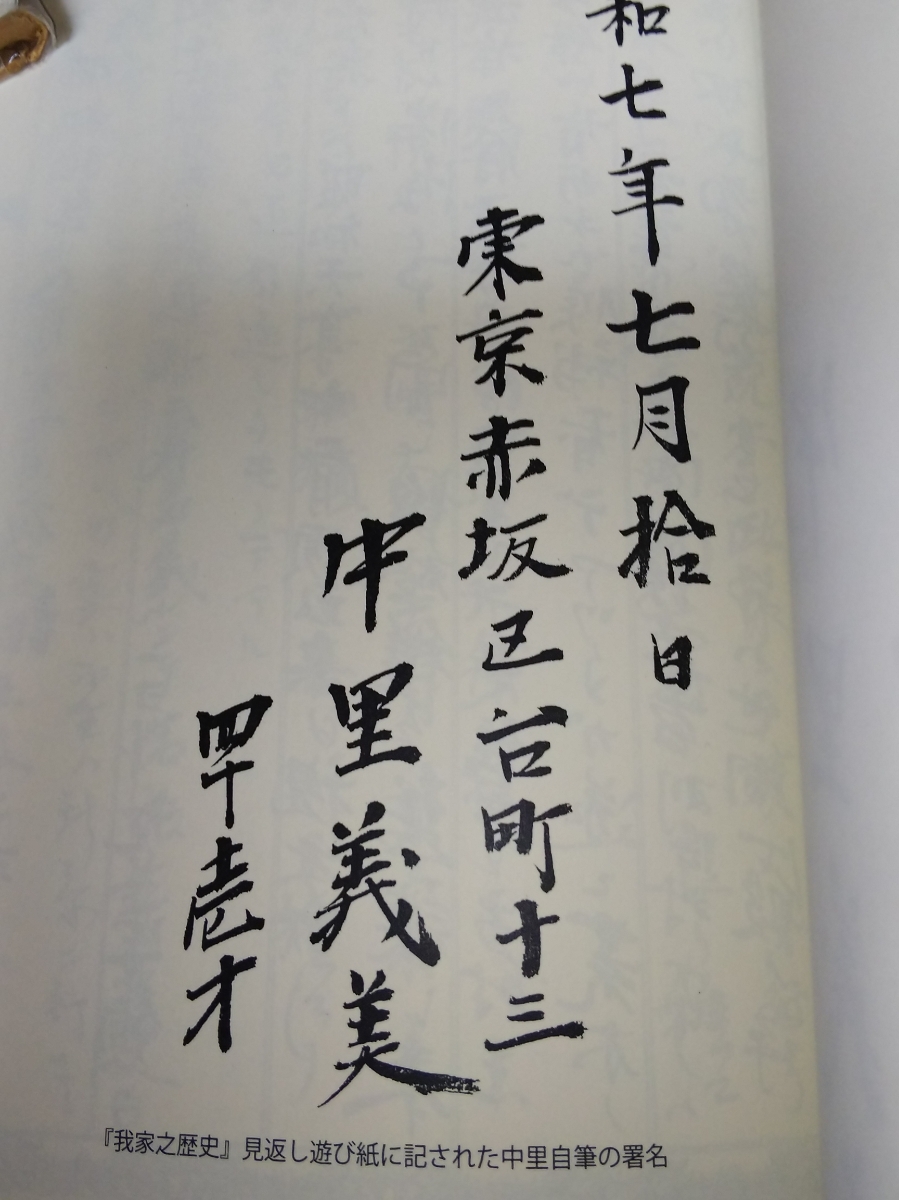 和七年七月拾日
東京赤坂区台町十三
中里義美
四十壱才
『我家之歴史』見返し遊び紙に記された中里自筆の署名